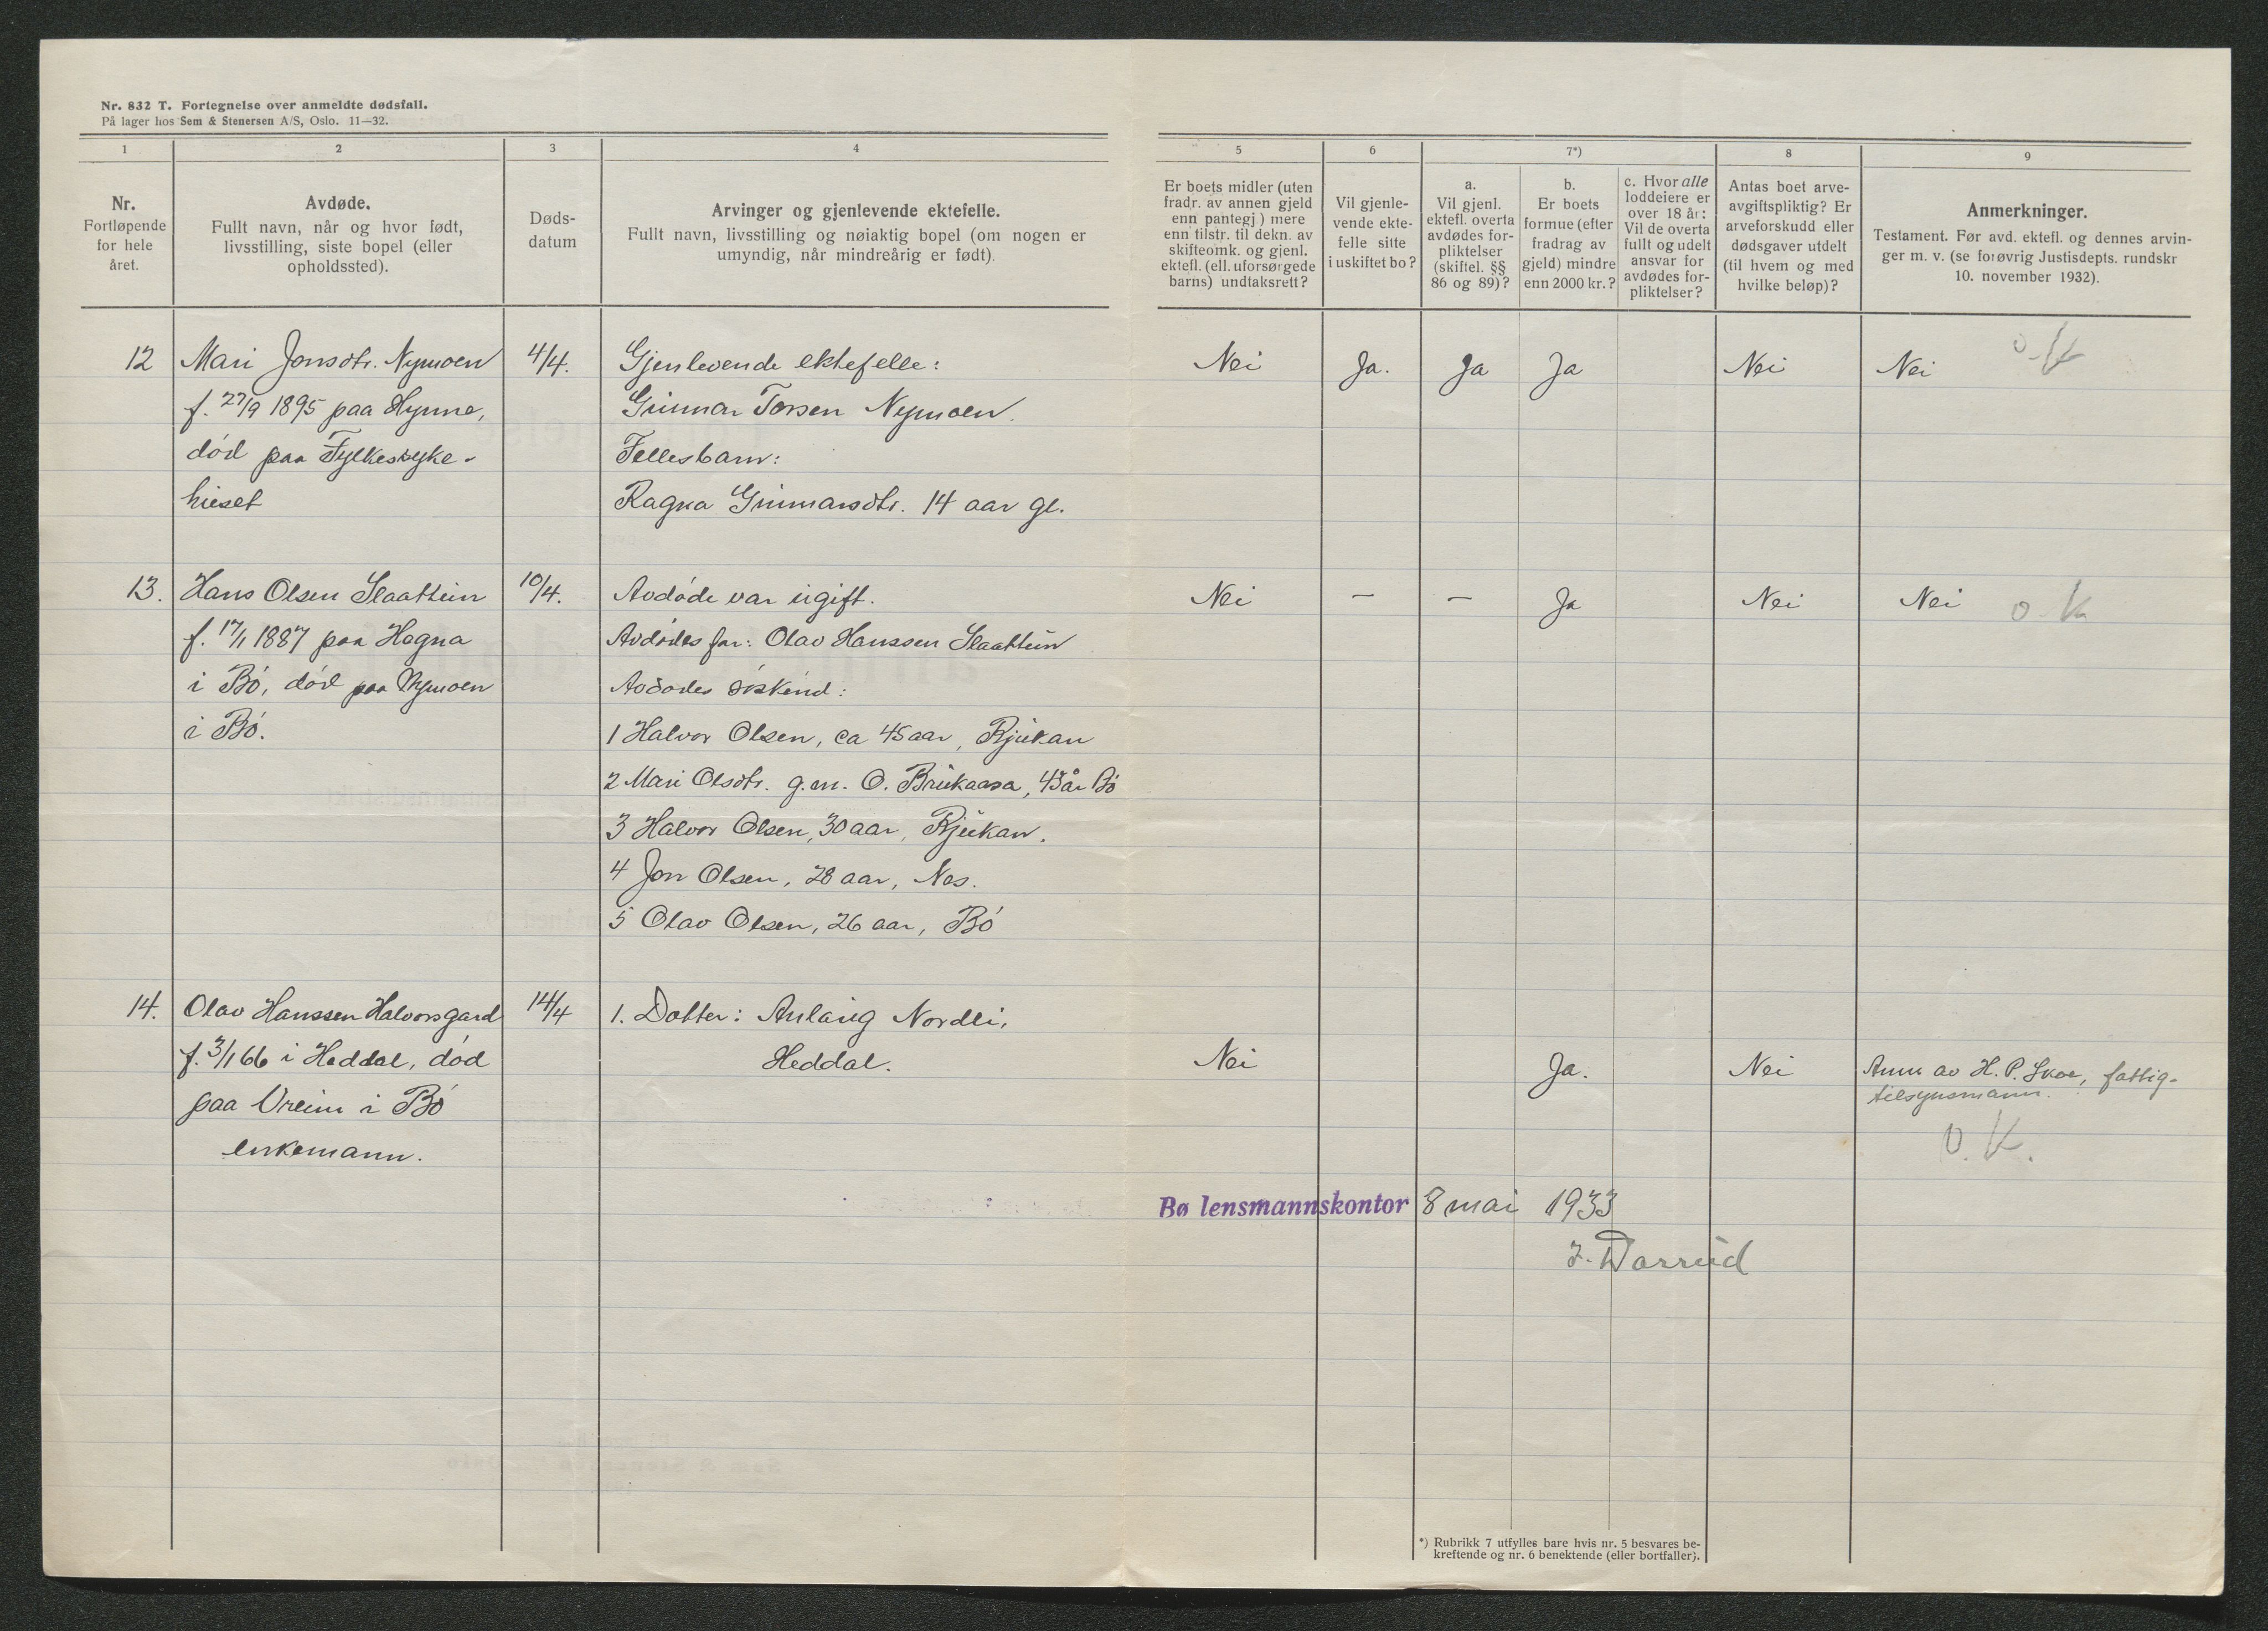 Nr. 832 T. Fortegnelse over anmeldte dødsfall.
På lager hos Sem & Stenersen A/S, Oslo. 11—32.
1 2 3 4 5 6 7*) 8 9
Nr.
Fortløpende
for hele
året.
Avdøde.
Fullt navn, når og hvor født,
livsstilling, siste bopel (eller
opholdssted).
Døds-
datum
Arvinger og gjenlevende ektefelle.
Fullt navn, livsstilling og nøiaktig bopel (om nogen er
umyndig, når mindreårig er født).
Er boets midler (uten
fradr. av annen gjeld
enn pantegj) mere
enn tilstr. til dekn. av
skifteomk. og gjenl.
ektefl. (ell. uforsørgede
barns) undtaksrett?
Vil gjenle-
vende ekte-
felle sitte
i uskiftet bo?
a.
Vil gjenl.
ektefl. overta
avdødes for-
pliktelser
(skiftel. §§
86 og 89)?
b.
Er boets
formue (efter
fradrag av
gjeld) mindre
enn 2000 kr.?
c. Hvor alle
loddeiere er
over 18 år:
Vil de overta
fullt og udelt
ansvar for
avdødes for-
pliktelser?
Antas boet arve-
avgiftspliktig? Er
arveforskudd eller
dødsgaver utdelt
(til hvem og med
hvilke beløp)?
Anmerkninger.
Testament. Før avd. ektefl. og dennes arvin-
ger m. v. (se forøvrig Justisdepts. rundskr
10. november 1932).
12 Mari Jonsdtr. Nymoen 4/4. Gjenlevende ektefelle: Nei Ja. Ja Ja Nei Nei o.K
f. 27/9 1895 paa Hynne, Gunnar Torsen Nymoen.
død paa Fylkessyke- Fellesbarn:
huset Ragna Gunnarsdtr. 14 aar gl.
13. Hans Olsen Slaattun 10/4. Avdøde var ugift. Nei — — Ja Nei Nei o.K
f. 17/1 1887 paa Hogna Avdødes far: Olav Hanssen Slaattun
i Bø, død paa Nymoen Avdødes søskend:
i Bø. 1 Halvor Olsen, ca 45 aar, Rjukan
2 Mari Olsdtr. g.m. O. Brukaasa, 43 år Bø
3 Halvor Olsen, 30 aar, Rjukan.
4 Jon Olsen, 28 aar, Nes.
5 Olav Olsen, 26 aar, Bø
14. Olav Hanssen Halvorsgard 14/4 1. Datter: Anlaug Nordli,
f. 3/1 66 i Heddal, død Heddal. Nei Ja. Nei Anm av H. P. Skoe, fattig-
tilsynsmann.
paa Vreim i Bø
enkemann. O.K.
Bø lensmannskontor 8 mai 1933
Darrud
*) Rubrikk 7 utfylles bare hvis nr. 5 besvares be-
kreftende og nr. 6 benektende (eller bortfaller).